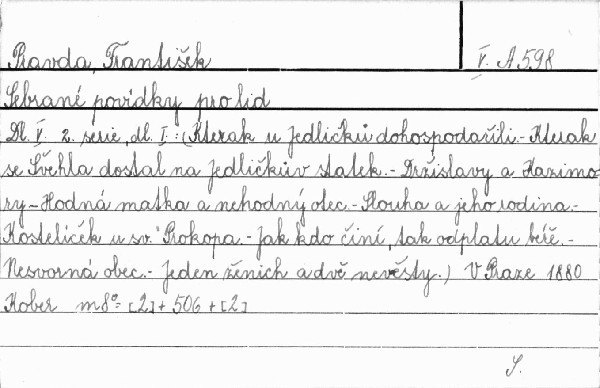 Pravda, František
V. A 598
Sebrané povídky pro lid
Dl. V. 2. serie, dl. I: (Kterak u Jedličků dohospodařili.- Kterak
se Švehla dostal na Jedličkův statek.- Držislavy a Kazimo-
ry - Hodná matka a nehodný otec.- Plouha a jeho rodina.-
Kostelíček u sv. Prokopa.- Jak kdo činí, tak odplatu béře.-
Nesvorná obec.- Jeden ženich a dvě nevěsty.) V Praze 1880
Kober m8°= [2] + 506 + [2]
S.